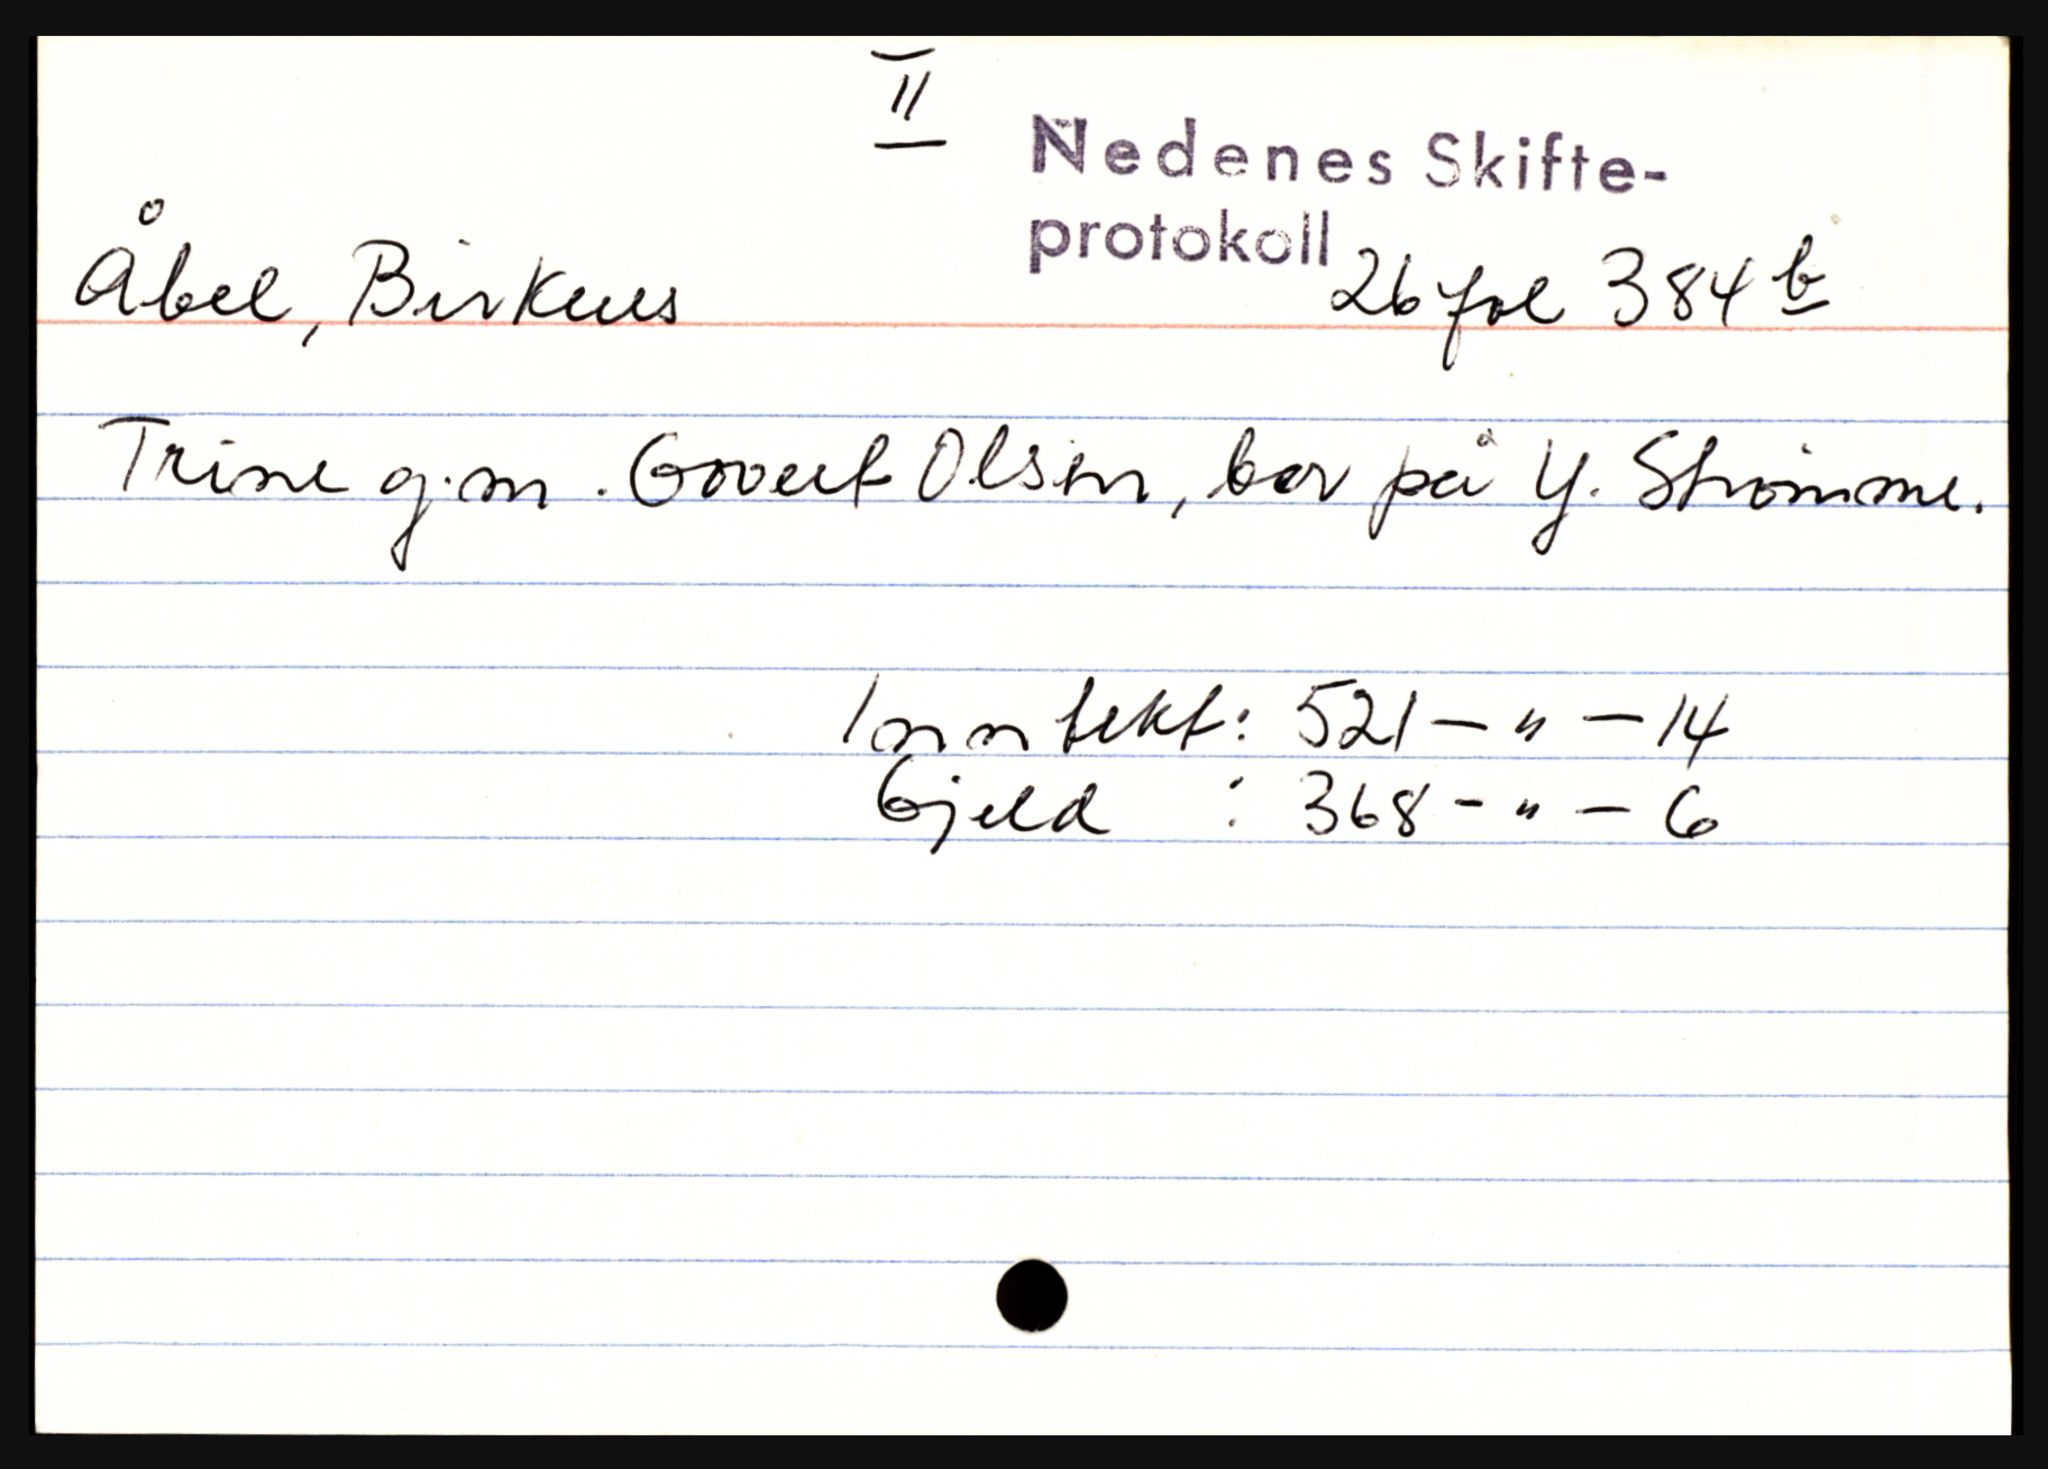 II
Nedenes Skifte-
protokoll 26 fol 384 b
Åbel, Birkenes
Trine g.m. Govert Olsen, bor på Y. Strømme.
Inntekt: 521 – " – 14
Gjeld : 368 - " – 6